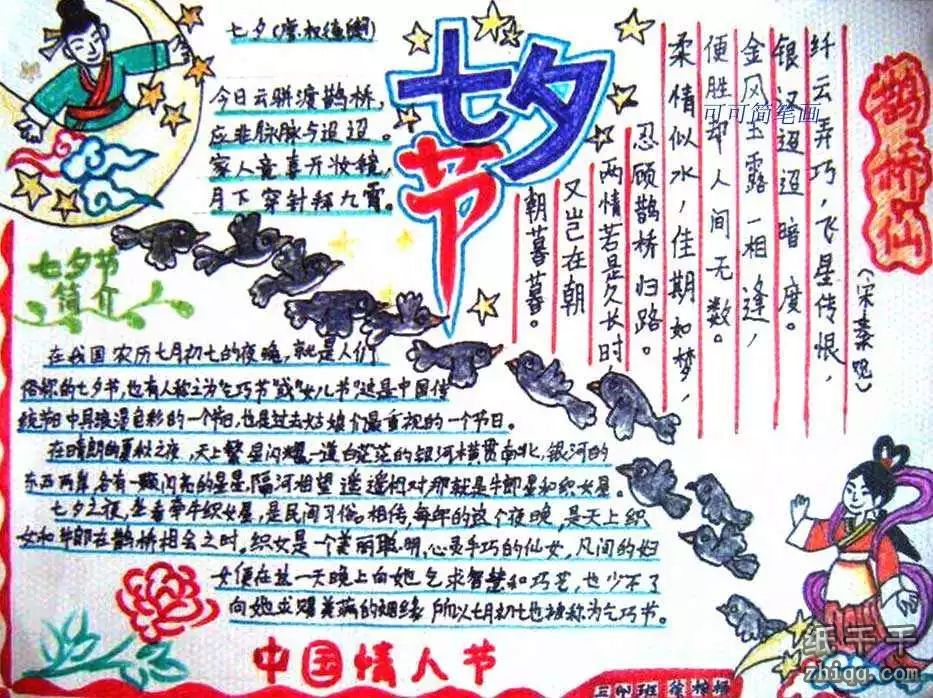 七夕(唐权德舆)
今日云骈渡鹊桥,
应非脉脉与迢迢。
家人竞喜开妆镜,
月下穿针拜九霄。
七夕
节
鹊桥仙
(宋秦观)
纤云弄巧,飞星传恨,
银汉迢迢暗度。
金风玉露一相逢,
便胜却人间无数。
柔情似水,佳期如梦,
忍顾鹊桥归路。
两情若是久长时
又岂在朝
朝暮暮。
可可简笔画
七夕节
简介
在我国农历七月初七的夜晚,就是人们
俗称的七夕节,也有人称之为"乞巧节"或"女儿节"这是中国传
统节日中具浪漫色彩的一个节日,也是过去姑娘们最重视的一个节日。
在晴朗的夏秋之夜,天上繁星闪耀一道白茫茫的银河横贯南北,银河的
东西两岸各有一颗闪亮的星星隔河相望遥遥相对那就是牛郎星和织女星。
七夕之夜,坐看牵牛织女星,是民间习俗。相传,每年的这个夜晚,是天上织
女和牛郎在鹊桥相会之时。织女是一个美丽聪明,心灵手巧的仙女,凡间的妇
女便在这一天晚上向她乞求智慧和巧艺,也少不了
向她求赐美满的姻缘所以七月初七也被称为乞巧节。
中国情人节
班
纸千千
zhiqq.com